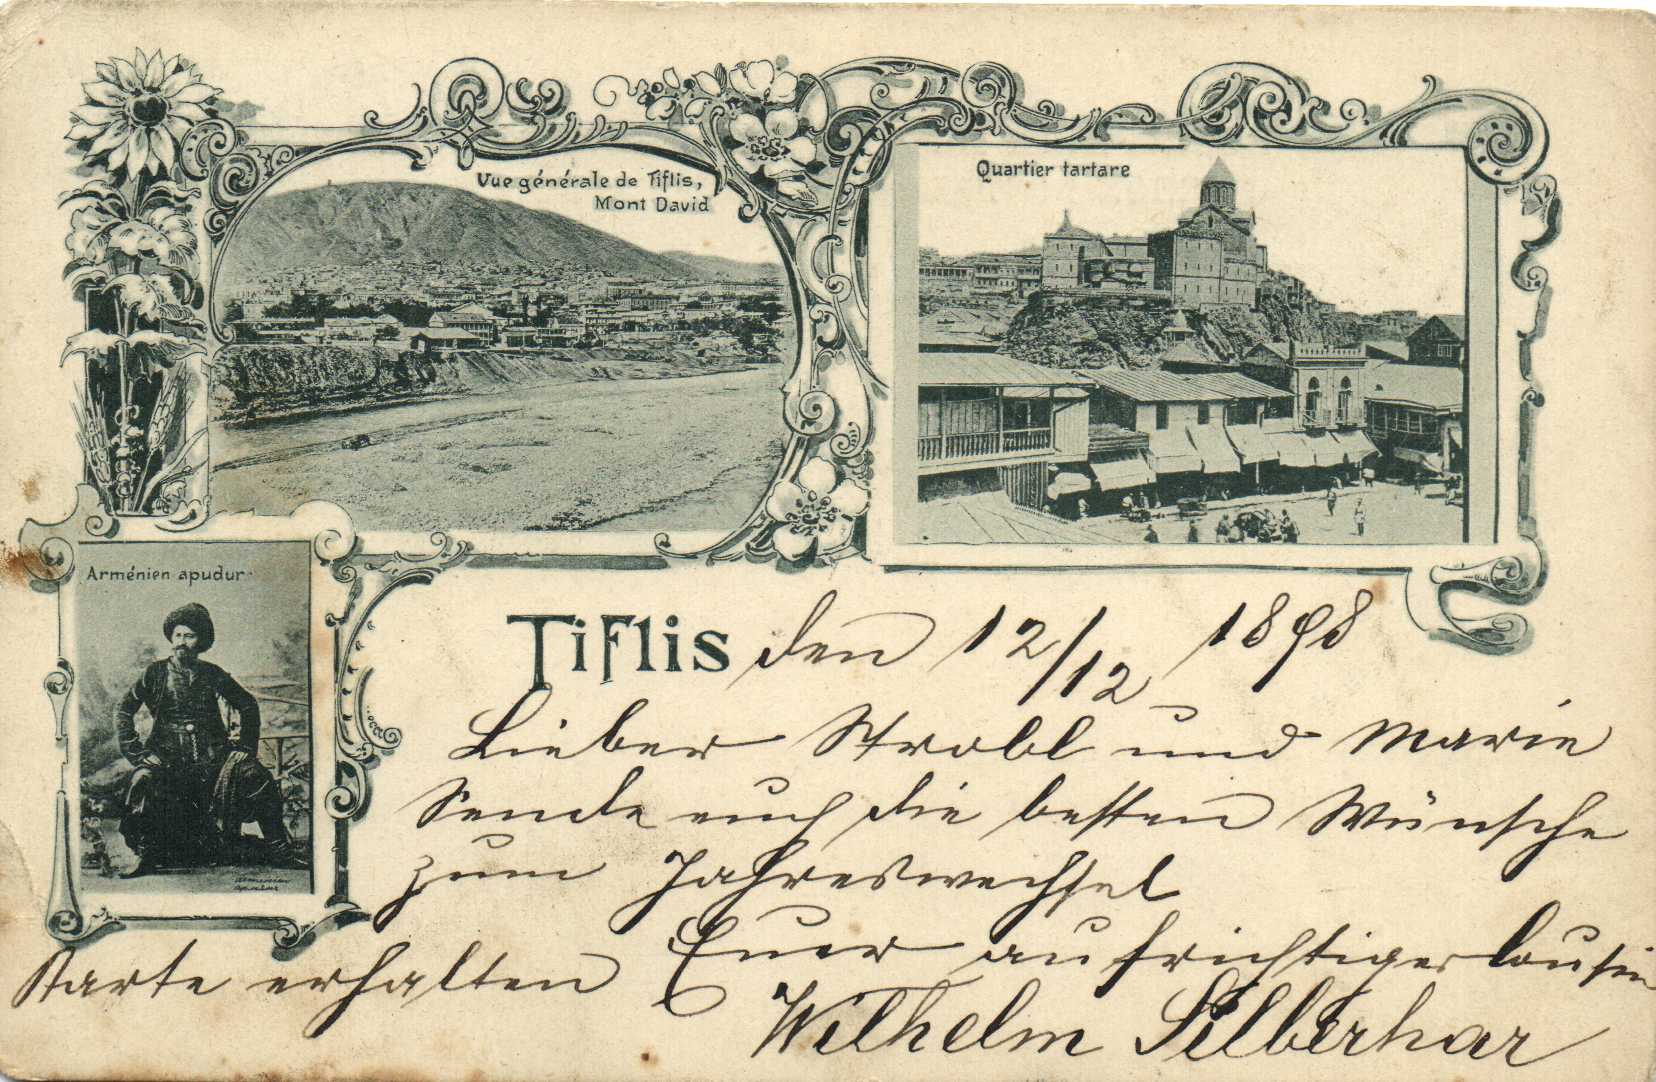 Vue générale de Tiflis,
Mont David
Quartier tartare
Arménien apudur
Arménien
apudur
Tiflis den 12/12 1898
Lieber Strobl und Marie
Sende euch die besten Wünsche
zum Jahreswechsel
Karte erhalten Euer aufrichtiger Cousin
Wilhelm Silberhar